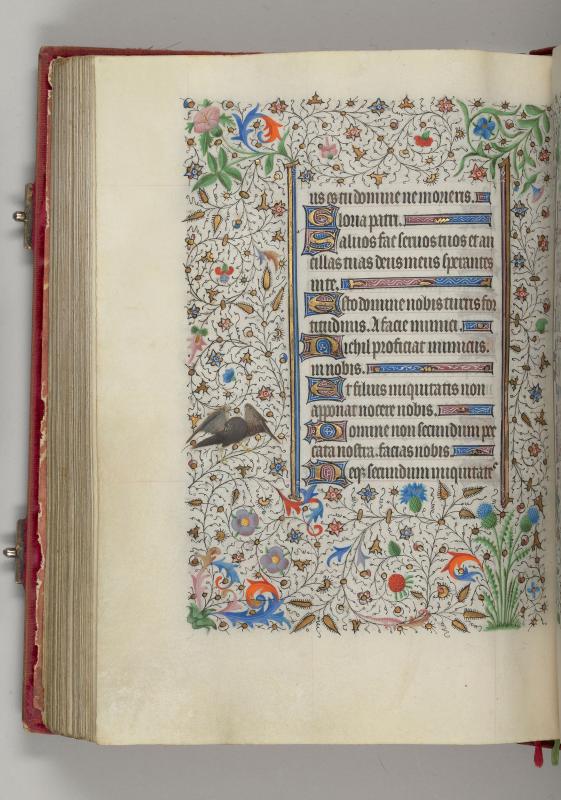 us es tu domine ne morieris.
Gloria patri.
Saluos fac seruos tuos et an
cillas tuas deus meus sperantes
in te.
Esto domine nobis turris for
titudinis. A facie inimici.
Nichil proficiat inimicus
in nobis.
Et filius iniquitatis non
apponat nocere nobis.
Domine non secundum pec
cata nostra facias nobis
Neqꝫ secundum iniquitates